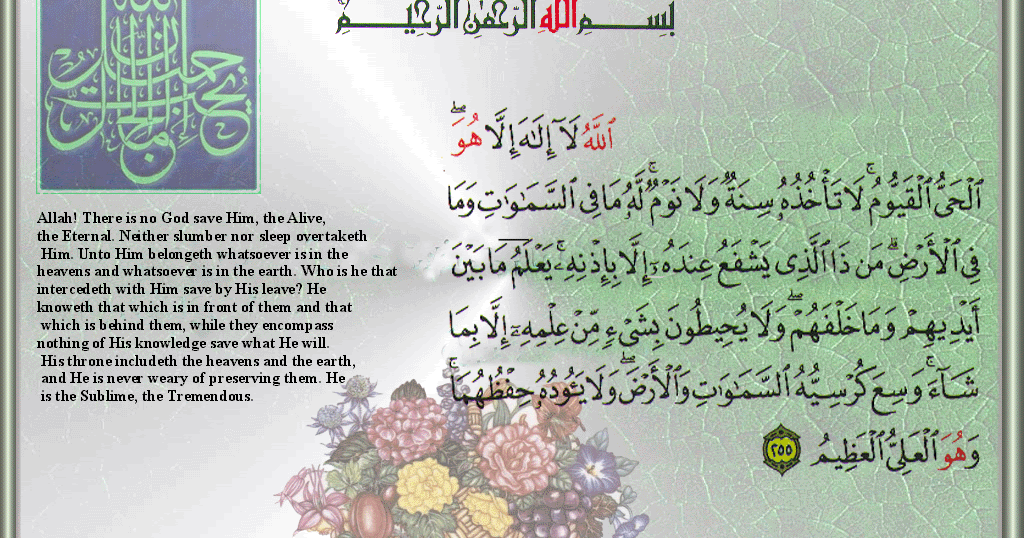 بِسْمِ اللهِ الرَّحْمٰنِ الرَّحِيْمِ
ٱللَّهُ لَآ إِلَـٰهَ إِلَّا هُوَۖ
ٱلْحَىُّ ٱلْقَيُّومُۚ لَا تَأْخُذُهُۥ سِنَةٌۭ وَلَا نَوْمٌۭۚ لَّهُۥ مَا فِى ٱلسَّمَـٰوَٰتِ وَمَا
فِى ٱلْأَرْضِۗ مَن ذَا ٱلَّذِى يَشْفَعُ عِندَهُۥٓ إِلَّا بِإِذْنِهِۦۚ يَعْلَمُ مَا بَيْنَ
أَيْدِيهِمْ وَمَا خَلْفَهُمْۖ وَلَا يُحِيطُونَ بِشَىْءٍۢ مِّنْ عِلْمِهِۦٓ إِلَّا بِمَا
شَآءَۚ وَسِعَ كُرْسِيُّهُ ٱلسَّمَـٰوَٰتِ وَٱلْأَرْضَۖ وَلَا يَـُٔودُهُۥ حِفْظُهُمَاۚ
وَهُوَ ٱلْعَلِىُّ ٱلْعَظِيمُ ٢٥٥
Allah! There is no God save Him, the Alive,
the Eternal. Neither slumber nor sleep overtaketh
Him. Unto Him belongeth whatsoever is in the
heavens and whatsoever is in the earth. Who is he that
intercedeth with Him save by His leave? He
knoweth that which is in front of them and that
which is behind them, while they encompass
nothing of His knowledge save what He will.
His throne includeth the heavens and the earth,
and He is never weary of preserving them. He
is the Sublime, the Tremendous.